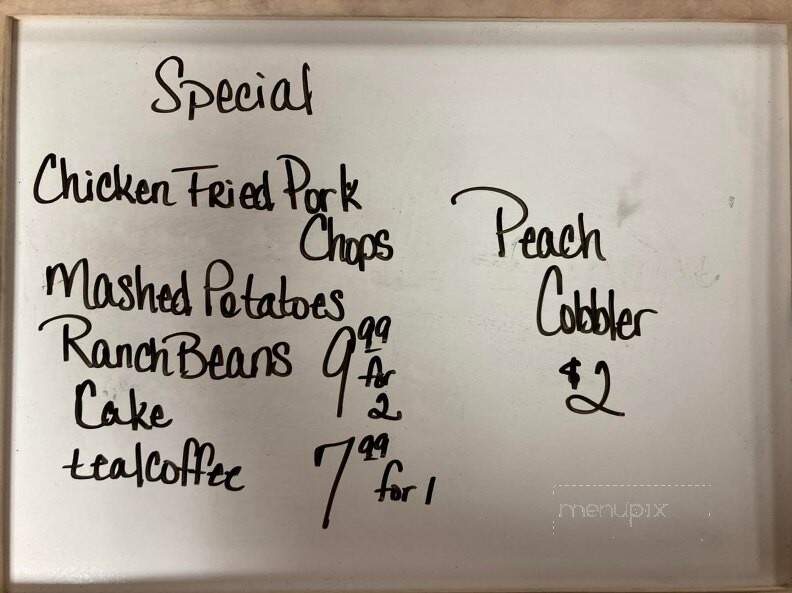 Special
Chicken Fried Pork
Chops
Mashed Potatoes
Ranch Beans
Cake
tea/coffee
9.99
for
2
7.99
for 1
Peach
Cobbler
$2
menupix